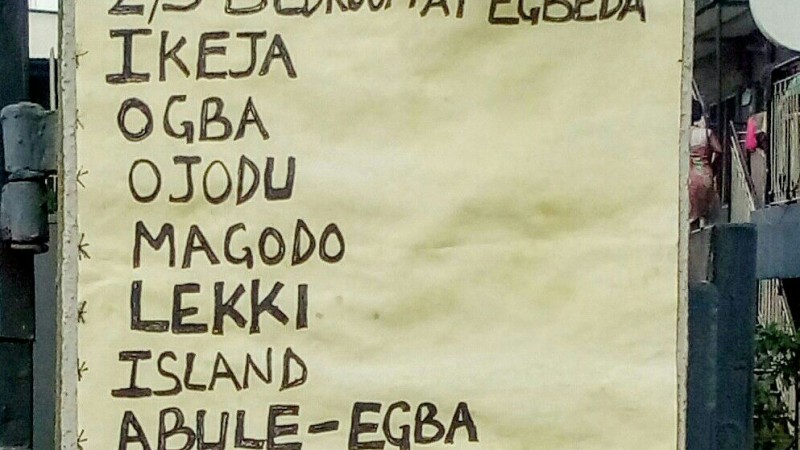 2/3 BEDROOM AT EGBEDA
* IKEJA
* OGBA
* OJODU
* MAGODO
* LEKKI
* ISLAND
* ABULE-EGBA